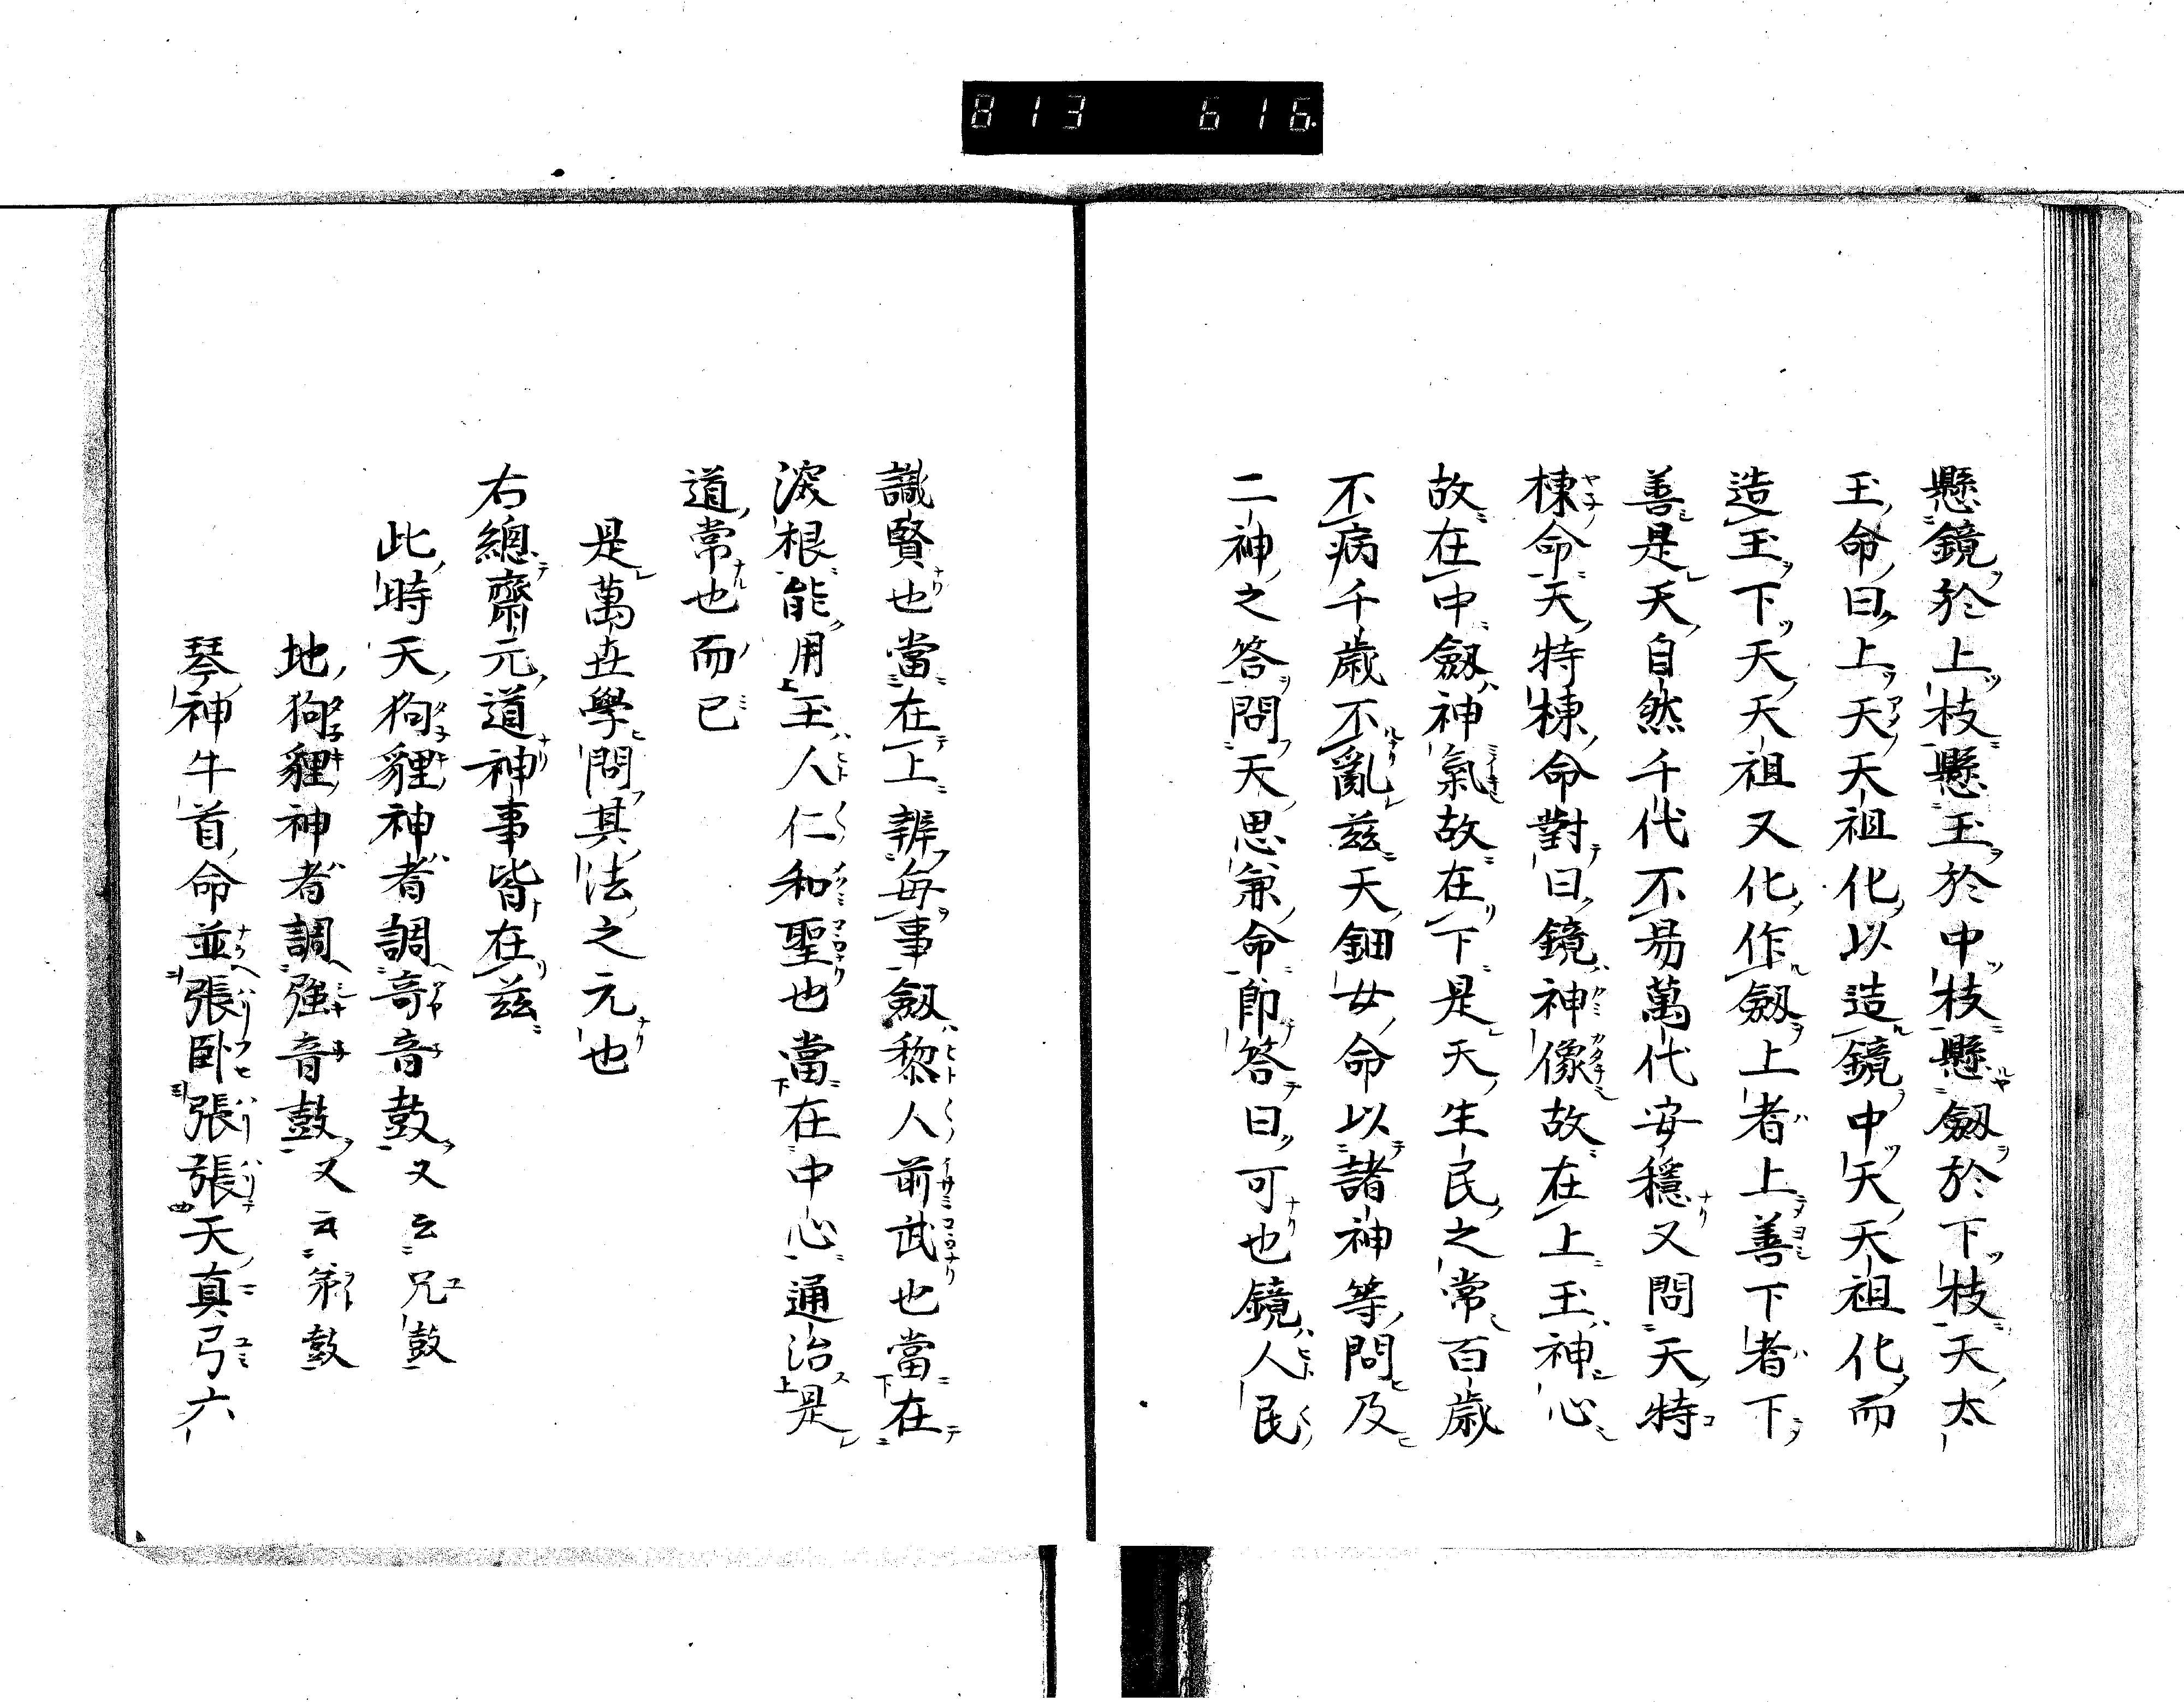 813 616
懸鏡於上枝懸玉於中枝懸劔於下枝天太
玉命曰上天天祖化以造鏡中天天祖化而
造玉下天天祖又化作劔上者上善下者下
善是天自然千代不易萬代安穩又問天特
棟命天特棟命對曰鏡神像故在上玉神心
故在中劔神氣故在下是天生民之常百歲
不病千歲不亂茲天鈿女命以諸神等問及
二神之答問天思兼命即答曰可也鏡人民
識賢也當在上辨毎事劔黎人前武也當在
根能用玉人仁和聖也當在中心通治是
道常也而已
是萬世學問其法之元也
右總齋元道神事皆在茲
此時天狗貍神者調奇音鼓又云兄鼓
地狗貍神者調強音鼓又云弟鼓
琴神牛首命並張臥張張天真弓六